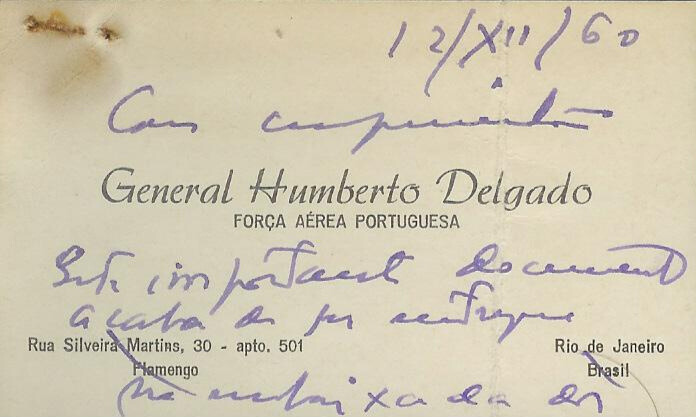 12/XII/60
Com cumprimentos
General Humberto Delgado
FORÇA AÉREA PORTUGUESA
Este important document
acaba de ser entregue
Rua Silveira Martins, 30 - apto. 501 Rio de Janeiro
Flamengo Brasil
na embaixada dos